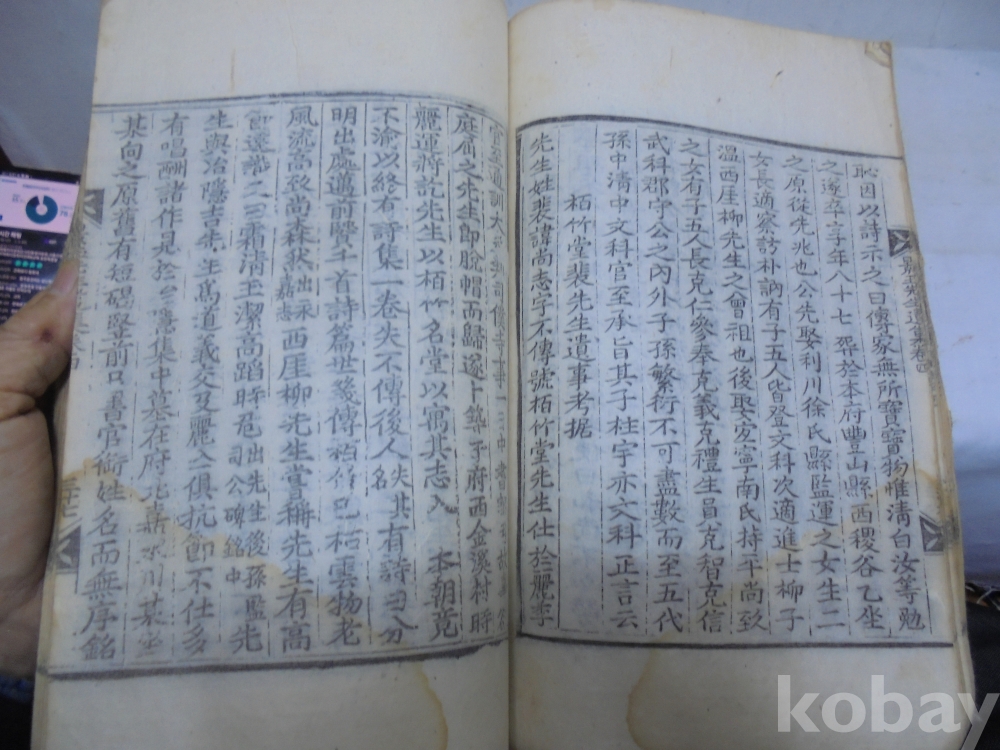 恥因以詩示之曰傳家無所寶寶物惟清白汝等勉
之遂卒享年八十七葬於本府豊山縣西稷谷乙坐
之原從先兆也公先娶利川徐氏縣監運之女生二
女長適察訪朴訥有子五人皆登文科次適進士柳子
溫西厓柳先生之曾祖也後娶宜寧南氏持平尚致
之女有子五人長克仁參奉克義克禮生員克智克信
武科郡守公之內外子孫繁衍不可盡數而至五代
孫中清中文科官至承旨其子柱宇亦文科正言云
栢竹堂裴先生遺事考据
先生姓裴諱尚志字不傳號栢竹堂先生仕於麗季
官至通訓大
庭肩之先生即脫帽而歸遂卜築于府西金溪村時
麗運將訖先生以栢竹名堂以寓其志入 本朝竟
不渝以終有詩集一卷失不傳後人失其名有詩曰八分
明出處邁前賢千首詩篇世幾傳栢竹已枯雲物老
風流高致尚森然出永嘉誌西厓柳先生嘗稱先生有高
節邃識又曰霜清玉潔高蹈時危出先生後孫監司公碑銘中先
生與冶隱吉先生為道義交及麗亡俱抗節不仕多
有唱酬諸作見於冶隱集中墓在府北
某向之原舊有短碣竪前只書官銜姓名而無序銘